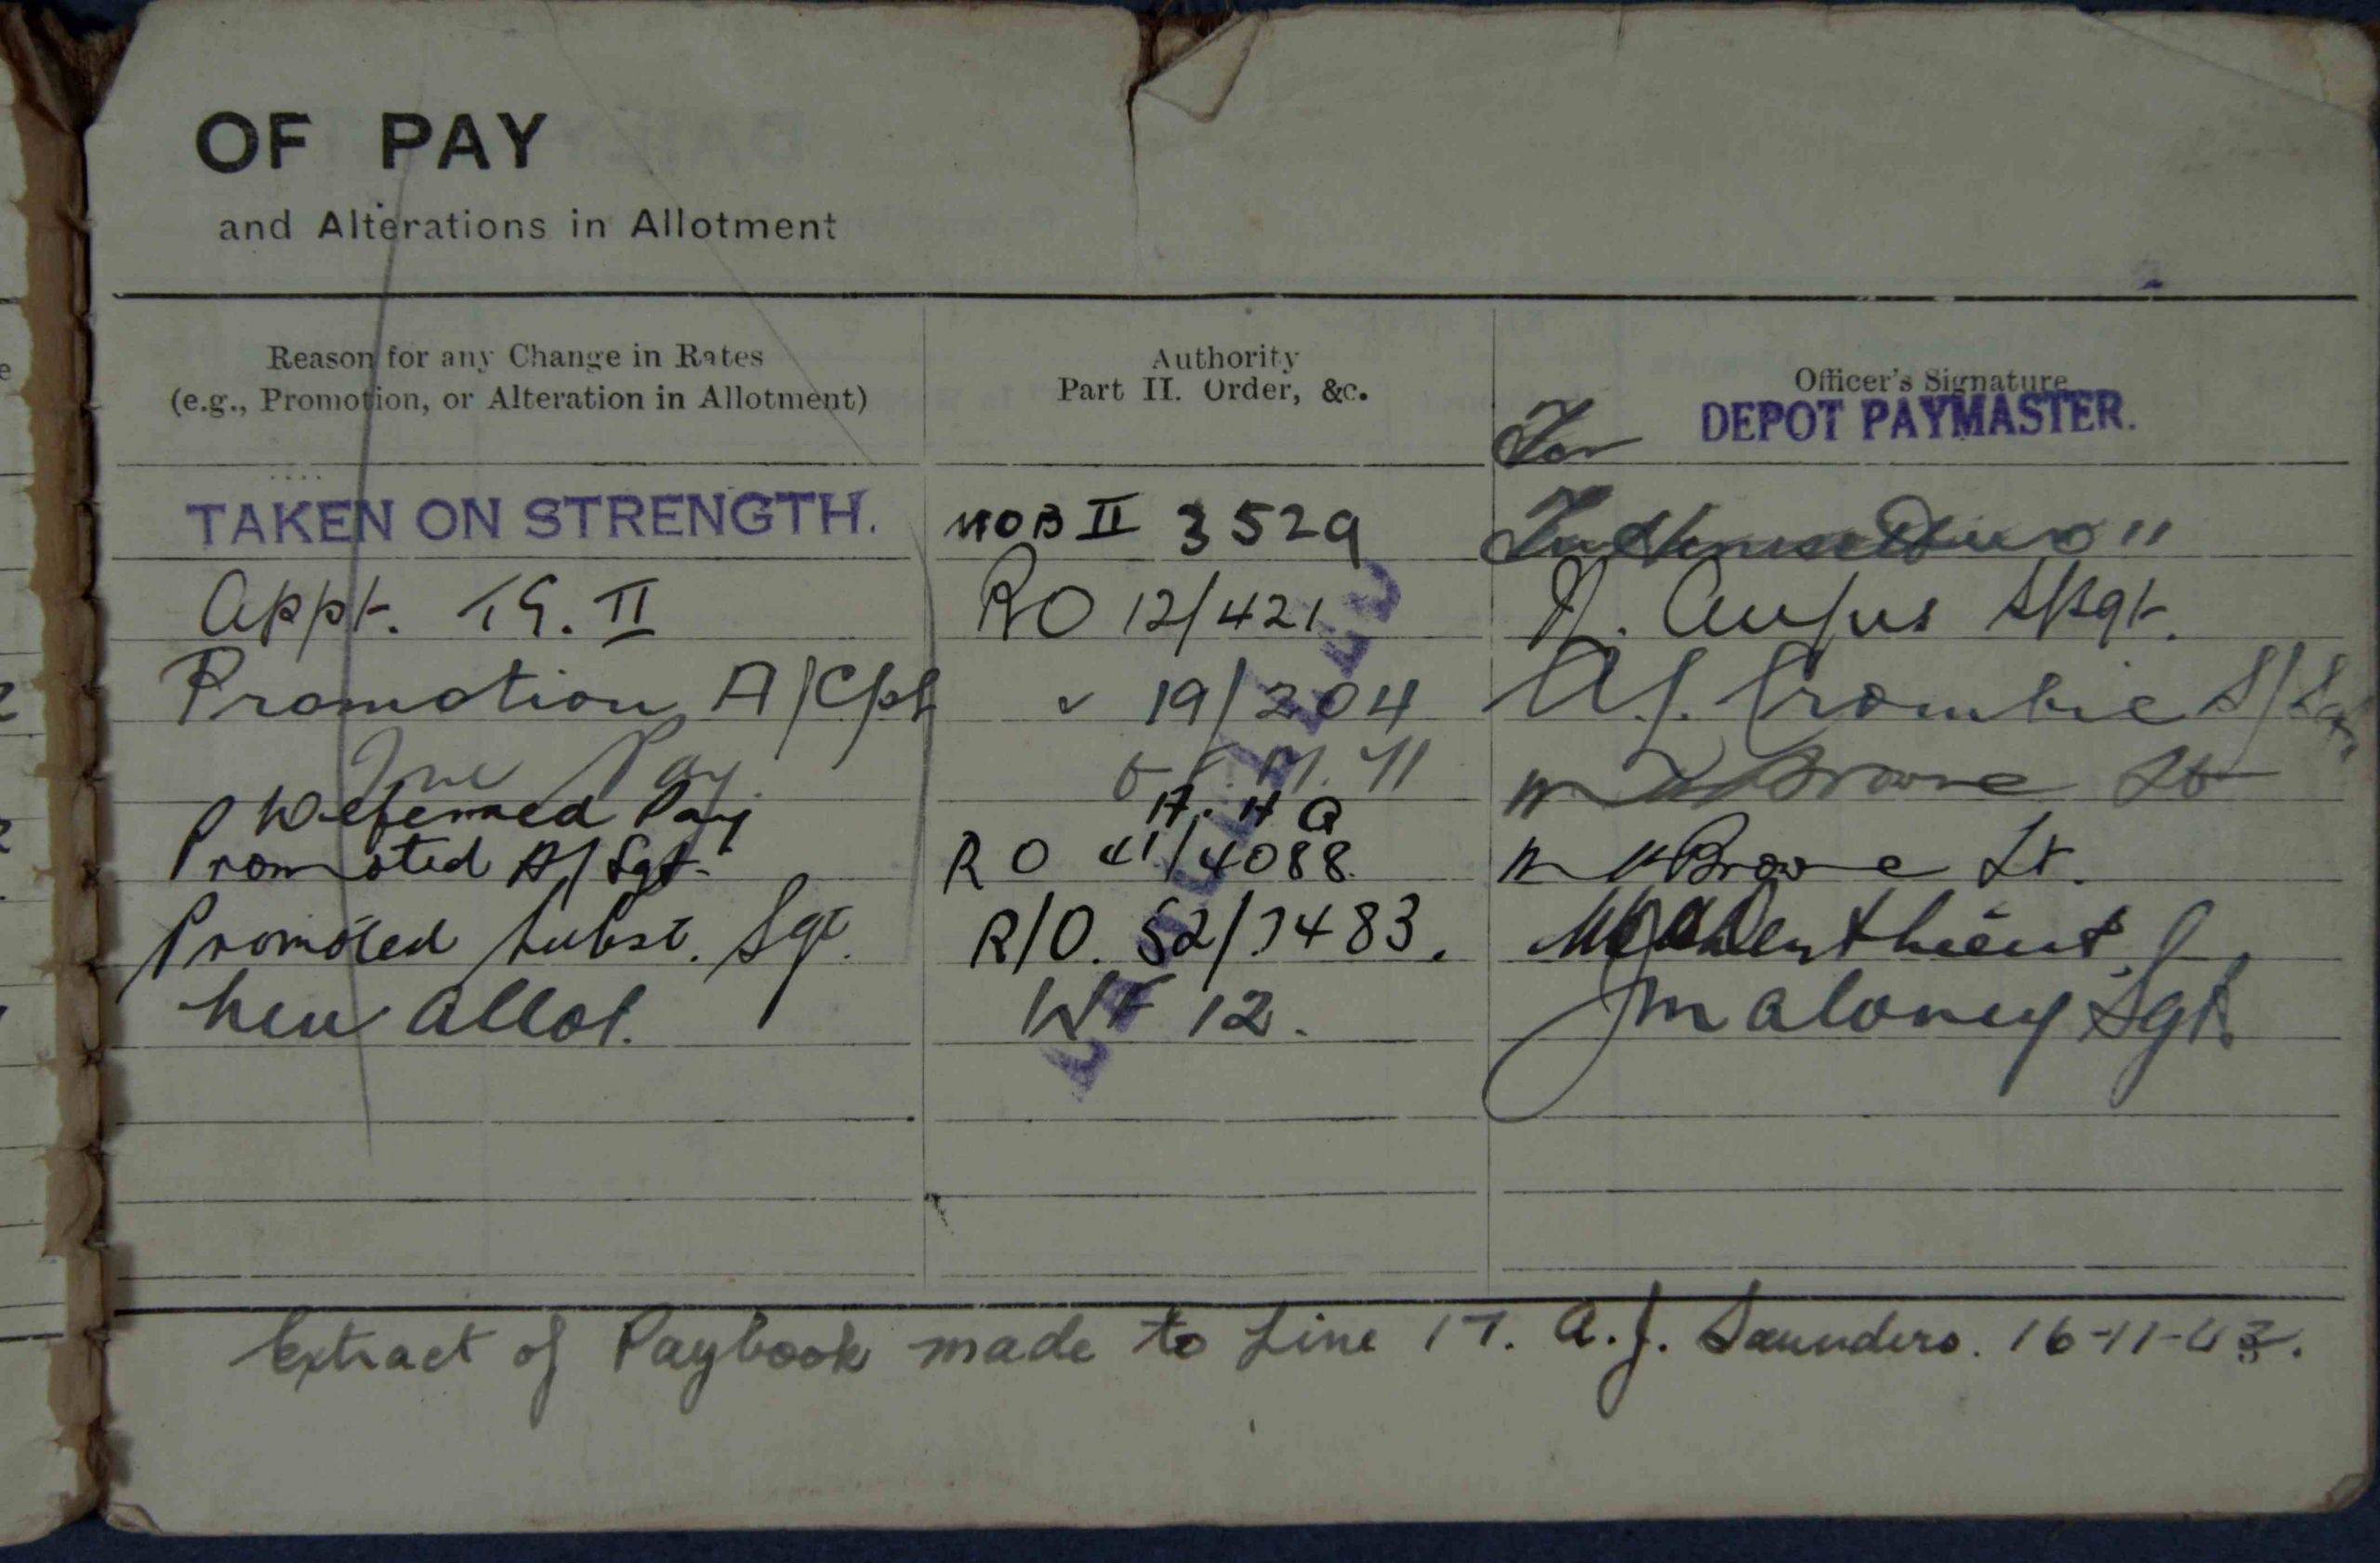 OF PAY
and Alterations in Allotment
Reason for any Change in Rates
(e.g., Promotion, or Alteration in Allotment)
Authority
Part II. Order, &c.
Officer's Signature
For DEPOT PAYMASTER.
TAKEN ON STRENGTH. MOB II 3529
Appt. TG. II RO 12/421
Promotion A/Cpl " 19/204 A J. Crombie S/Sgt
Inc Pay Browne Lt
Deferred Pay A. H Q
Promoted A/Sgt. RO 41/4088 Browne Lt.
Promoted Subst. Sgt. R/O. 52/7483.
New allot. WF 12. J Maloney Sgt.
CANCELLED
Extract of Paybook made to Line 17. A. J. Saunders. 16-11-43.